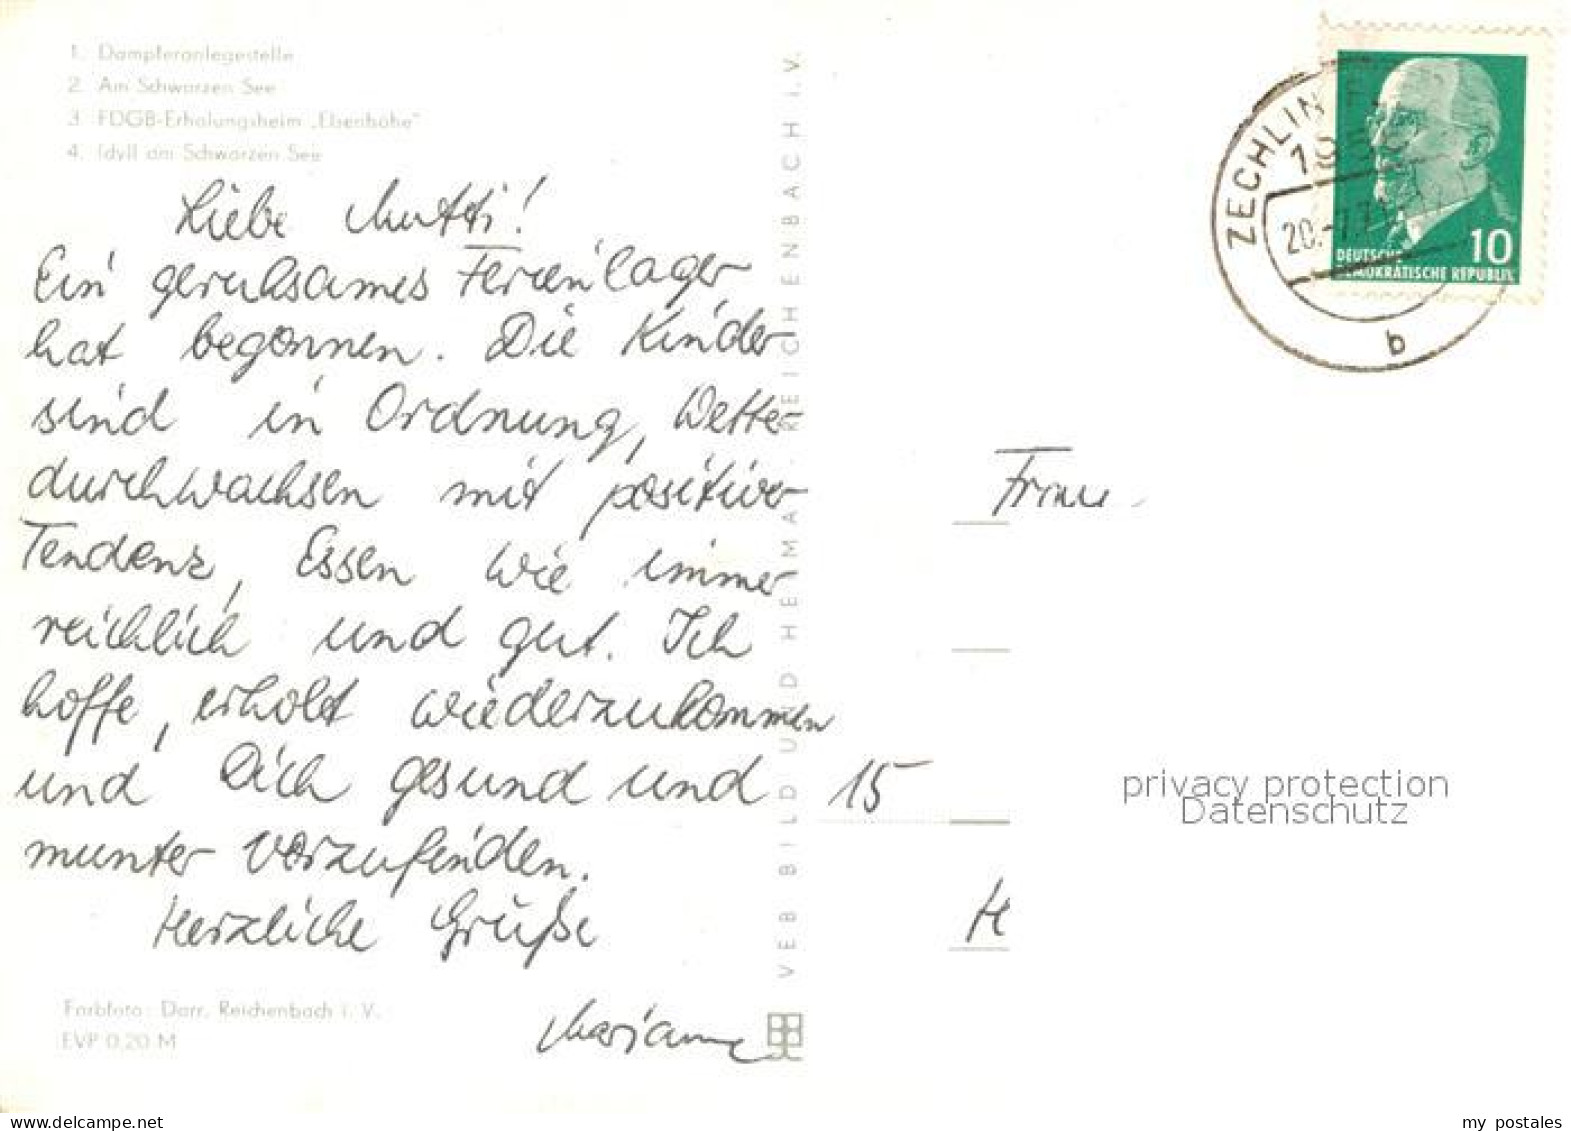 1. Dampferanlegestelle
2. Am Schwarzen See
3. FDGB-Erholungsheim „Elsenhöhe"
4. Idyll am Schwarzen See
Liebe Mutti!
Ein geruhsames Ferienlager
hat begonnen. Die Kinder
sind in Ordnung, Wetter
durchwachsen mit positiver
Tendenz, Essen wie immer
reichlich und gut. Ich
hoffe, erholt wiederzukommen
und Dich gesund und
munter vorzufinden.
Herzliche Grüße
Marianne
Farbfoto: Darr, Reichenbach i. V.
EVP 0,20 M
VEB BILD UND HEIMAT REICHENBACH i. V.
ZECHLIN
20.-7.71
b
DEUTSCHE
DEMOKRATISCHE REPUBLIK
10
Frau
15
H
privacy protection
Datenschutz
delcampe.net
my_postales